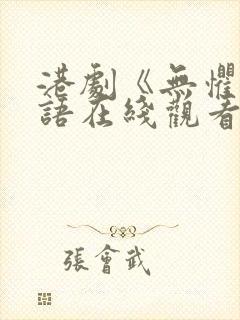 港劇《無懼
語在綫觀看
張會武